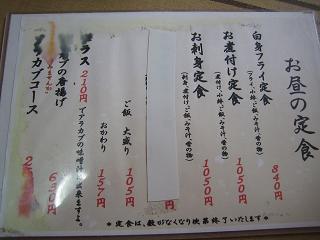 お昼の定食
白身フライ定食 840円
(フライ、小鉢、ご飯、みそ汁、香の物)
お煮付け定食 1050円
(煮付け、小鉢、ご飯、みそ汁、香の物)
お刺身定食 1050円
(刺身、煮付け、ご飯、みそ汁、香の物)
ご飯 大盛り 105円
おかわり 157円
プラス210円でアラカブの味噌汁に出来ますよ。
カブの唐揚げ 630円
カブコース
*定食は、数がなくなり次第終了いたします*